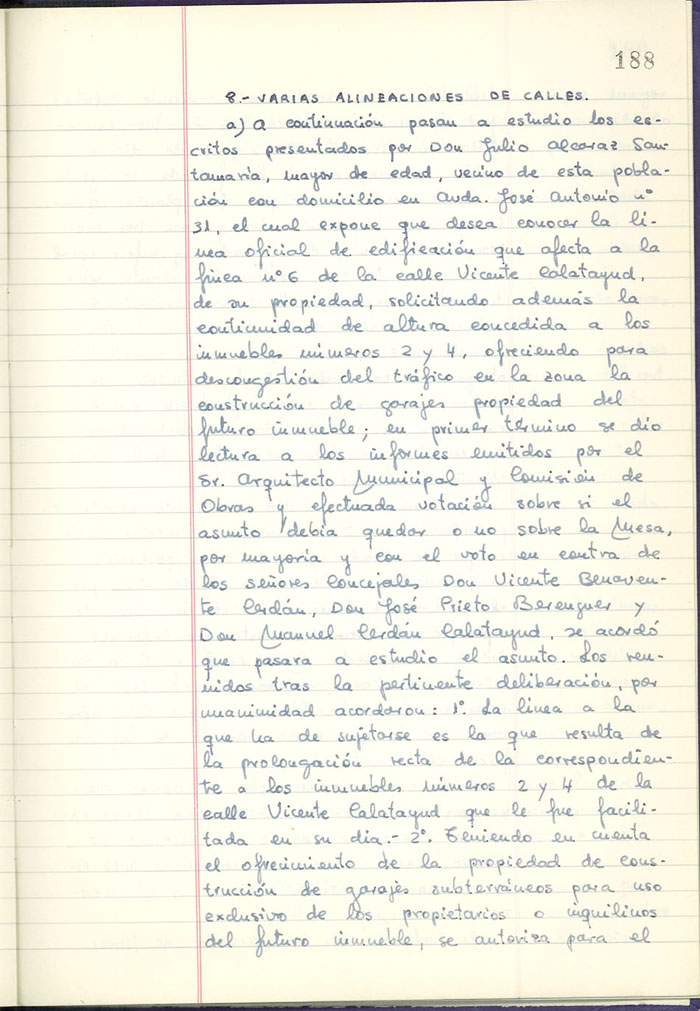 188
8.- VARIAS ALINEACIONES DE CALLES.
a) A continuación pasan a estudio los es-
critos presentados por Don Julio Alcaraz San-
tamaría, mayor de edad, vecino de esta pobla-
ción con domicilio en Avda. José Antonio nº
31, el cual expone que desea conocer la lí-
nea oficial de edificación que afecta a la
finca nº 6 de la calle Vicente Calatayud,
de su propiedad, solicitando además la
continuidad de altura concedida a los
inmuebles números 2 y 4, ofreciendo para
descongestión del tráfico en la zona la
construcción de garajes propiedad del
futuro inmueble; en primer término se dio
lectura a los informes emitidos por el
Sr. Arquitecto Municipal y Comisión de
Obras y efectuada votación sobre si el
asunto debía quedar o no sobre la Mesa,
por mayoría y con el voto en contra de
los señores Concejales Don Vicente Benaven-
te Cerdán, Don José Prieto Berenguer y
Don Manuel Cerdán Calatayud, se acordó
que pasara a estudio el asunto. Los reu-
nidos tras la pertinente deliberación, por
unanimidad acordaron: 1º. La línea a la
que ha de sujetarse es la que resulta de
la prolongación recta de la correspondien-
te a los inmuebles números 2 y 4 de la
calle Vicente Calatayud que le fue facili-
tada en su día.- 2º. Teniendo en cuenta
el ofrecimiento de la propiedad de cons-
trucción de garajes subterráneos para uso
exclusivo de los propietarios o inquilinos
del futuro inmueble, se autoriza para el